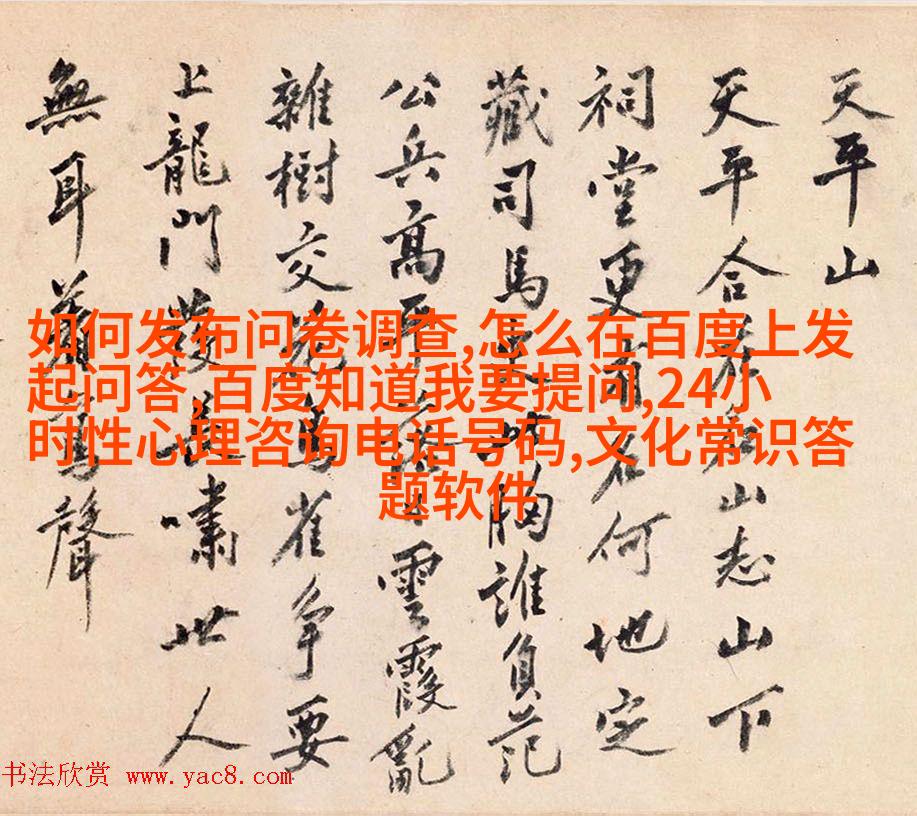 天平山
天平合山志山下
祠堂更何地定
藏司馬胸誰負范
公兵高雲霞亂
雜樹交雀爭要
上龍門發嘯世人
無耳聲
如何发布问卷调查,怎么在百度上发
起问答,百度知道我要提问,24小
时性心理咨询电话号码,文化常识答
题软件
书法欣赏 www.yac8.com